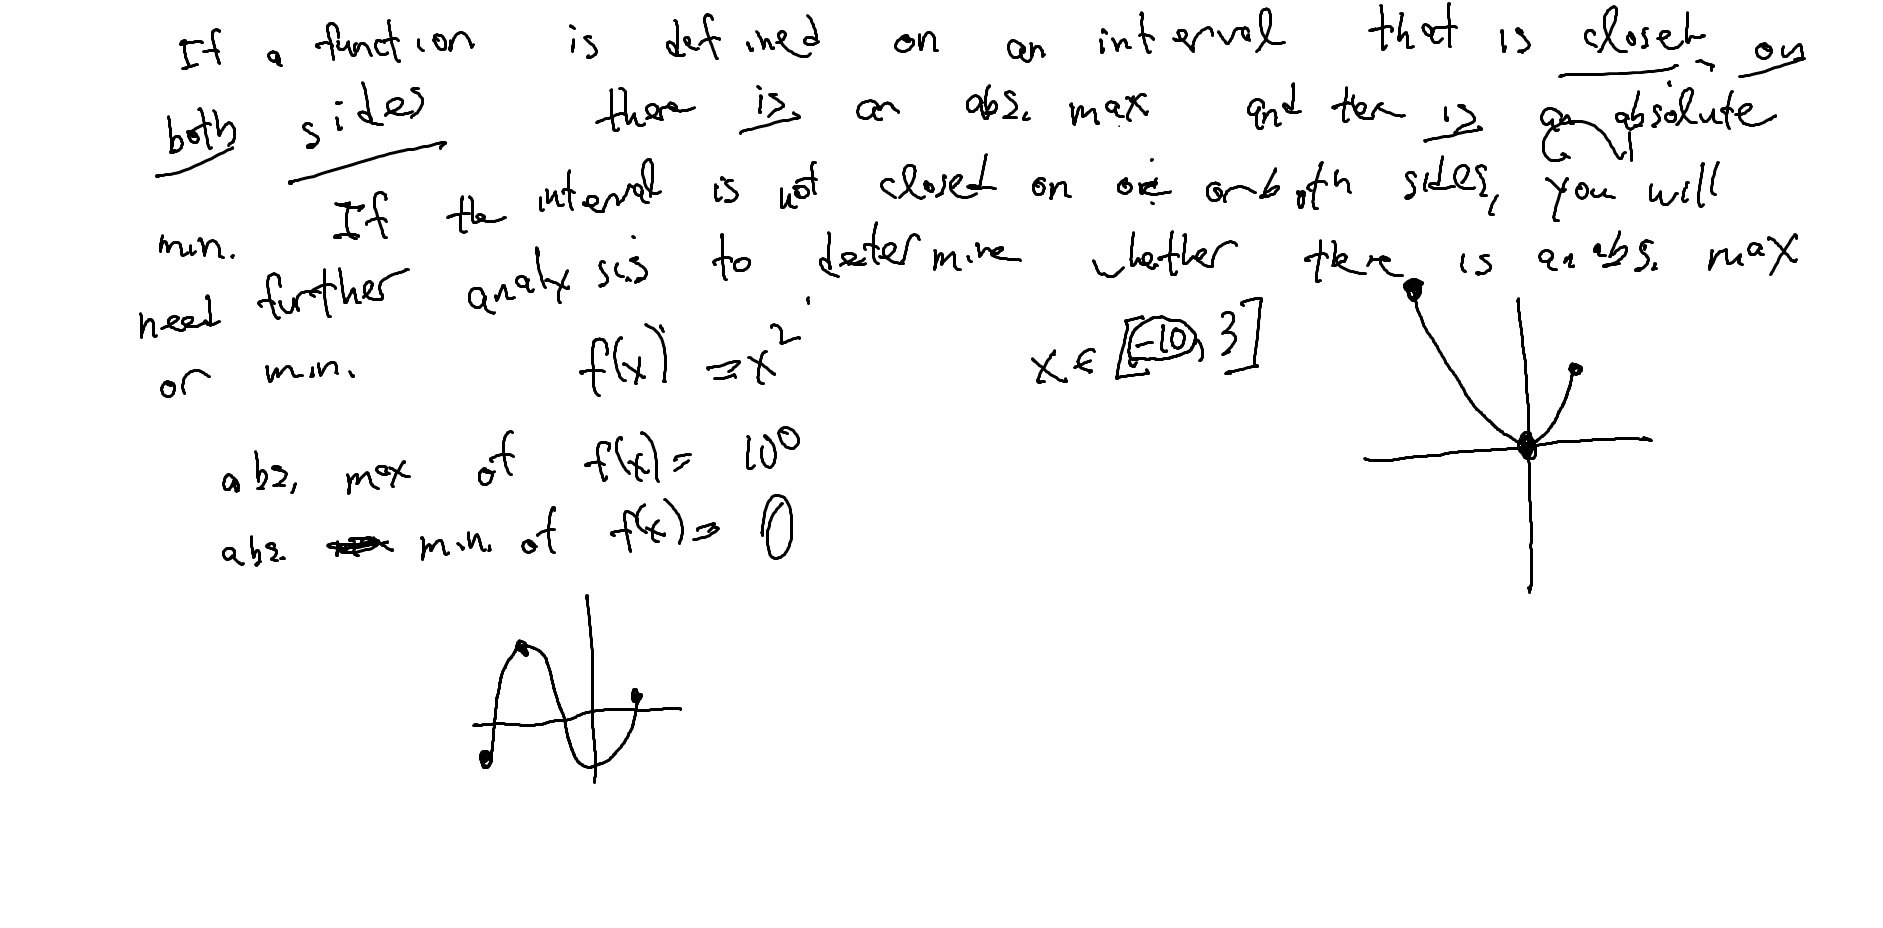 If a function is defined on an interval that is closed on
both sides there is an abs. max and there is an absolute
min. If the interval is not closed on one or both sides, you will
need further analysis to determine whether there is an abs. max
or min. f(x) = x² x ∈ [-10, 3]
abs. max of f(x) = 100
abs. min. of f(x) = 0